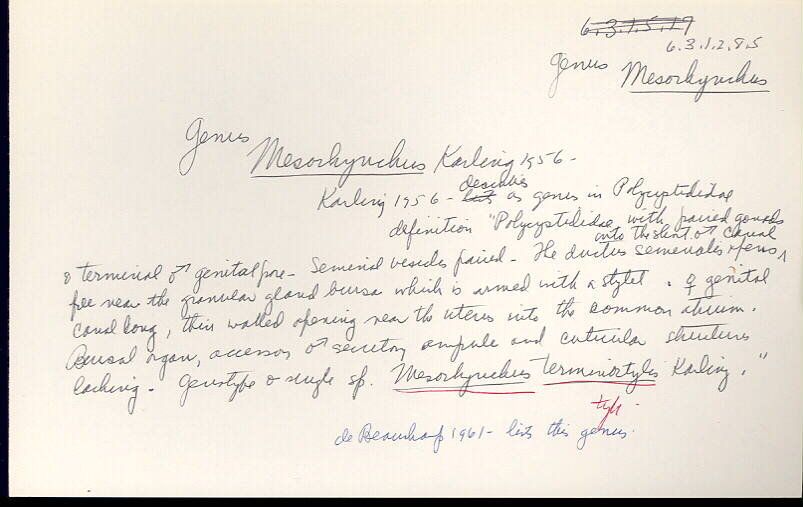 6.3.1.5.17
6.3.1.2.8.5
Genus Mesorhynchus
Genus
Mesorhynchus Karling 1956 -
Karling 1956 - lists describes as genus in Polycystididae
definition "Polycystididae with paired gonads
& terminal ♂ genital pore - Seminal vesicles paired - The ductus seminalis opens into the short ♂ canal
free near the granular gland bursa which is armed with a stylet. ♀ genital
canal long, thin walled opening near the uterus into the common atrium.
Bursal organ, accessory ♂ secretory ampule and cuticular structures
lacking - Genotype & single sp. Mesorhynchus terminostylis Karling."
type
de Beauchamp 1961 - lists this genus.